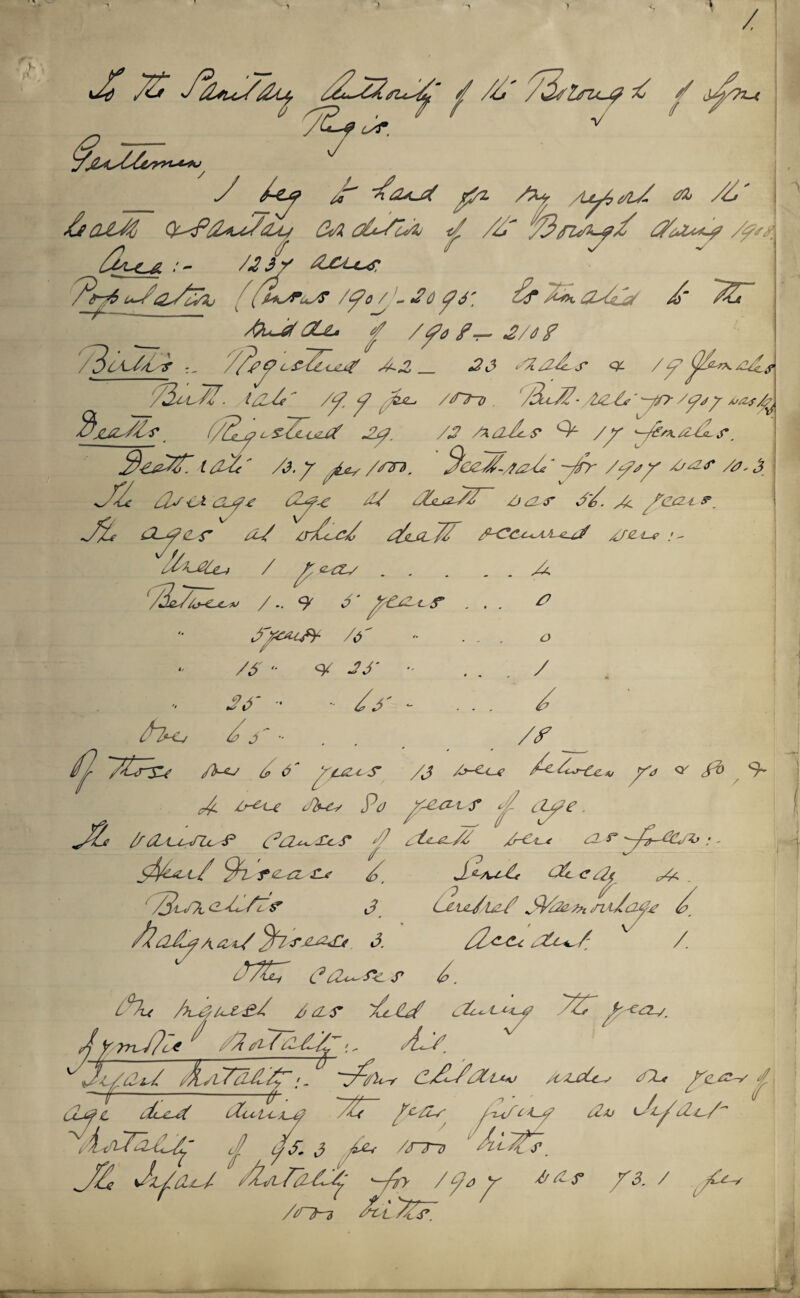 1.
To The Sanitary Authority of the Borough of Lyme
Regis.
Gentlemen
I beg to hand you my report on the
health & Sanitary Condition of the Borough during 1908
Area :- 1237 acres.
Population (Census 1901) - 2095. Estimated to the
middle of 1908 — 2108
Births :- Registered 42 — 23 males & 19 females
Birth-rate 19.9 per 1000. Birth-rate for 1907 was
Deaths. Registered 29. 12 males & 17 females.
Death-rate 13.7 per 1000. Death-rate for 1907 was 10.3
The average age at death was 56.4 years.
The ages at which death occurred were :-
Under 1 year . . . . . . 4
Between 1 .. & 5 years . . . 0
" 5 years & 15 " . . . 0
" 15 " & 25 " . . . 1
" 25 " " 65 " . . . 6
Over 65 " . . . . 18
Of those over 65 years 13 were between 70 & 80 &
4 were over 80 years of age.
The various Causes of death were as follows :-
Heart Disease 6. Senile decay 4.
Bronchitis 3. Cerebral Haemorrhage 6.
Malignant Disease 3. Accident 1.
Other Causes 6.
One Inquest was held during the year.
Zymotic Mortality :- Nil.
Infant Mortality :- Four children under one year of
age died during the year giving an Infant
Mortality of 95.3 per 1000 births.
The Infant Mortality for 1907 was 73.1 per
1000 births.